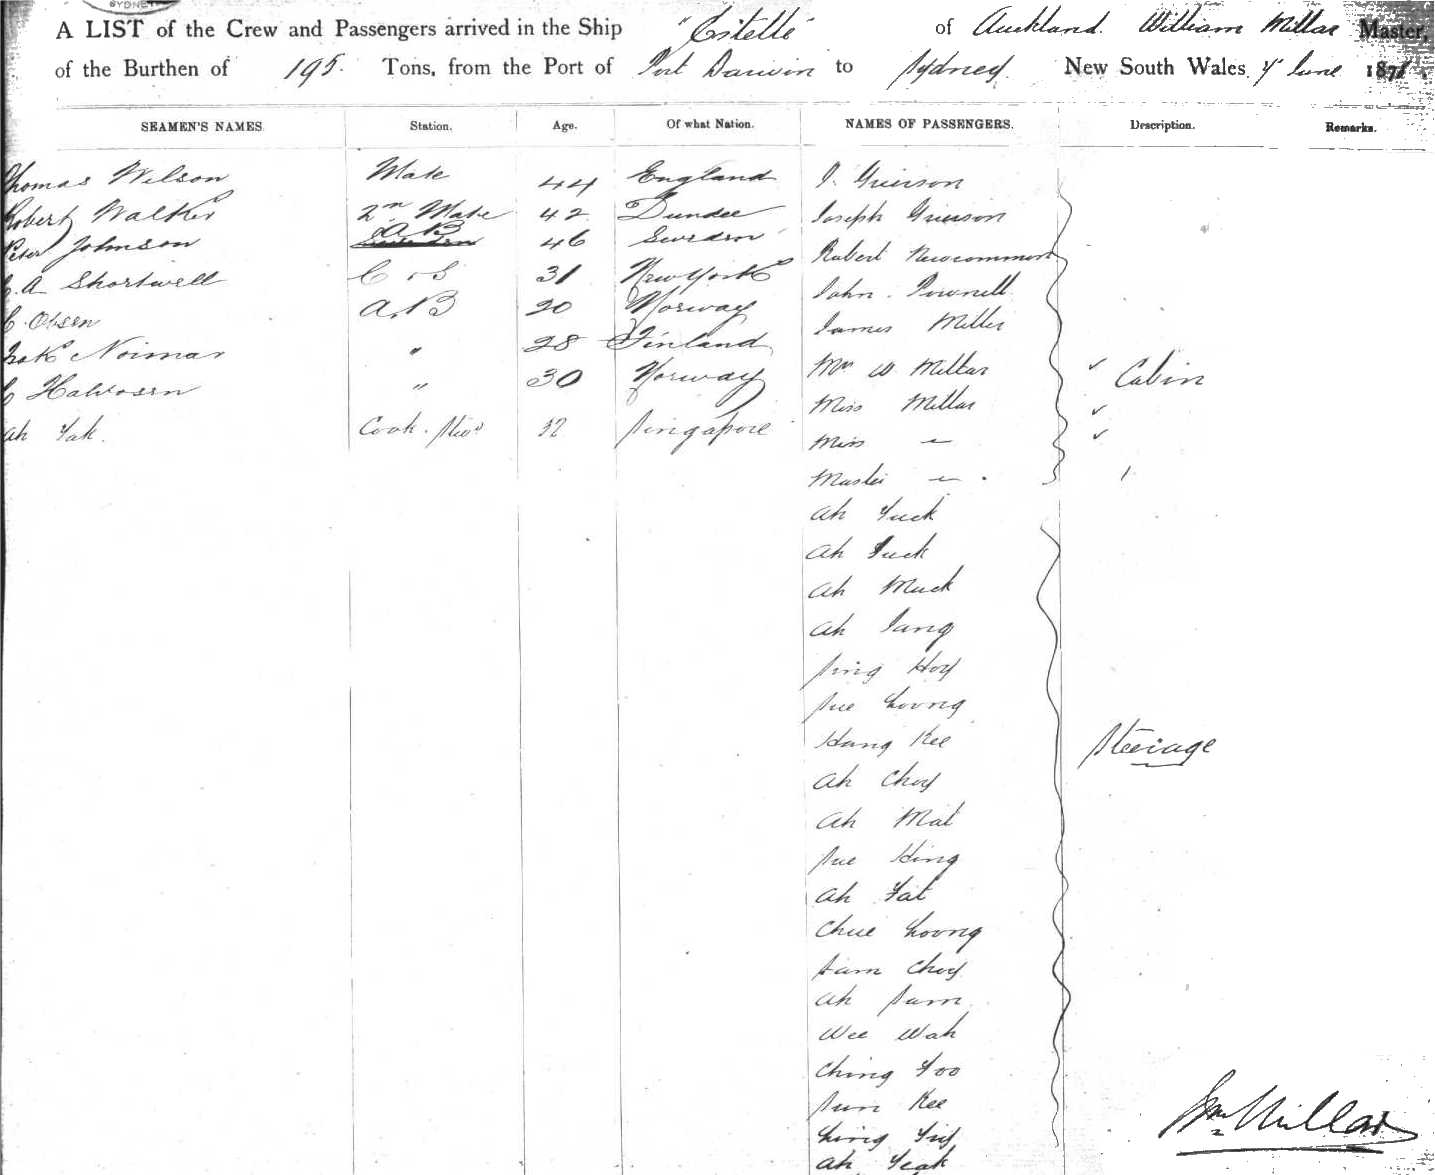 SYDNEY
A LIST of the Crew and Passengers arrived in the Ship "Estelle" of Auckland. William Millar Master,
of the Burthen of 195. Tons, from the Port of Port Darwin to Sydney New South Wales, June 187
SEAMEN'S NAMES Station. Age. Of what Nation. NAMES OF PASSENGERS. Description. Remarks.
Thomas Wilson Mate 44 England J. Grierson
Robert Walker 2nd Mate 42 Dundee Joseph Grierson
Peter Johnson AB 46 Sweeden Robert Newcommon
C. A Shortwell C & S 31 New York John Pownell
C. Olsen A.B 20 Norway James Miller
Noimar " 28 Finland Mrs W. Millar Cabin
C Halvosen " 30 Norway Miss Millar
Ah Yak. Cook. Stwd 32 Singapore Miss "
Master "
Ah Yuck
Ah Tuck
Ah Muck
Ah Sang
Sing Hoy
Sue Loong
Hang Kee Steerage
Ah Choy
Ah Mat
Sue Hing
Ah Fat
Chue Loong
Sam Choy
Ah Sum
Wee Wah
Ching Foo
Sun Kee
Ling
Ah Yeak
Wm Millar